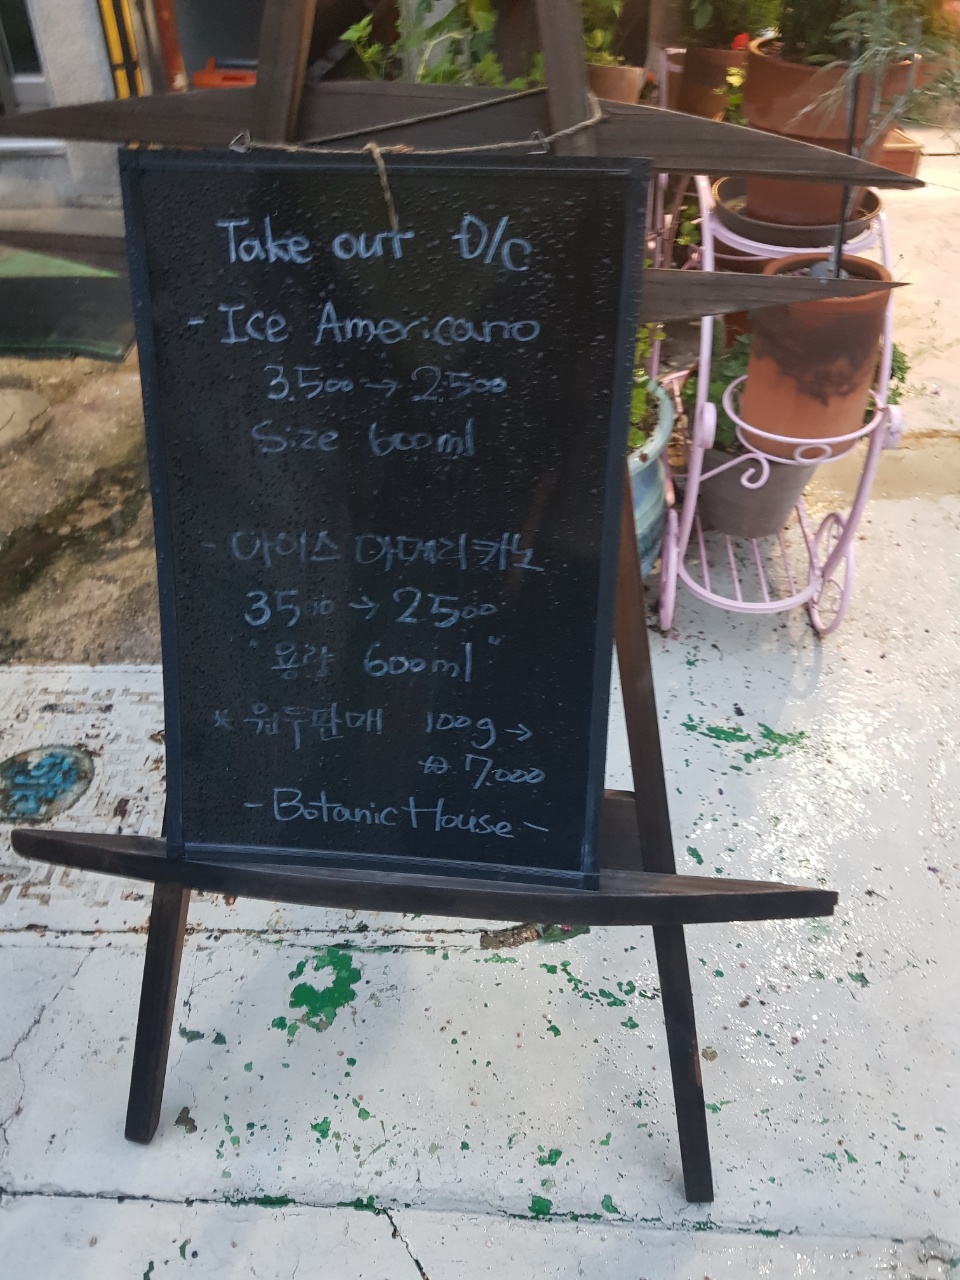 Take out D/C
- Ice Americano
3.500 → 2.500
Size 600ml
- 아이스 아메리카노
3500 → 2500
" 용량 600ml "
* 원두판매 100g →
₩ 7.000
- Botanic House -